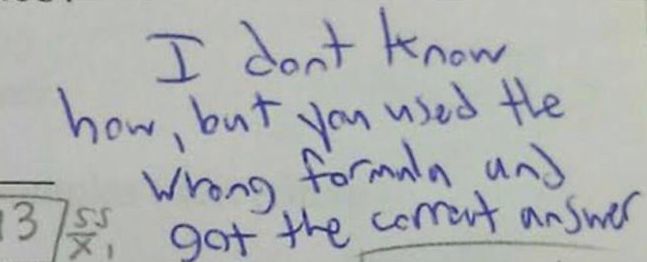 I dont know
how, but you used the
wrong formula and
got the correct answer
13